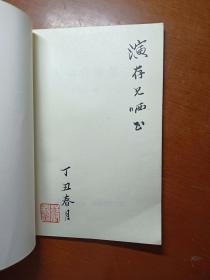 演存兄哂正
丁丑春月